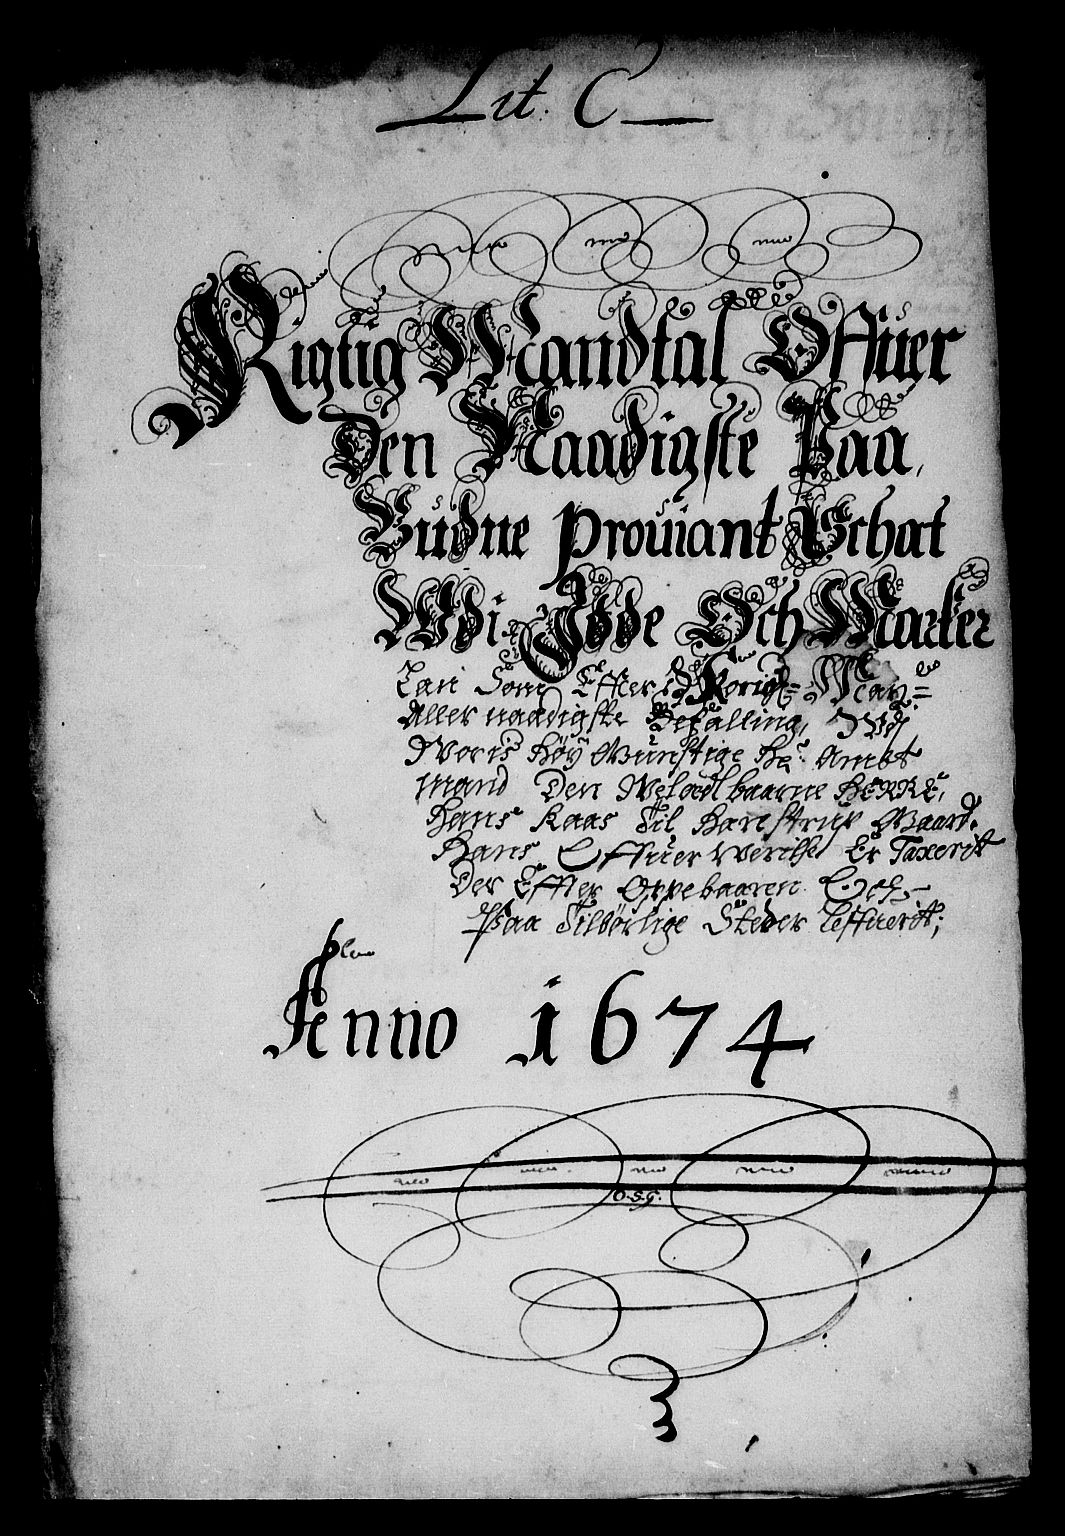 Lit. C
Rigtig Mandtal Offuer
Den Naadigste Paa,
Budne Prouiant Schat
Wdi Idde Och Marker
Læn Som Effter Kongl: May:
Aller naadigste Befalling,
Woris høy Gunstige Hr: Ambt
mand Den Welædlbaarne HERRE,
Hans Kaas Til Hanstrup Gaard.
Hans Offuer Werelse Er Taxerit
Der Effter Oppebaaren Och
Paa Tilbørlige Steder Leffuerit;
Anno 1674
O.S.G.